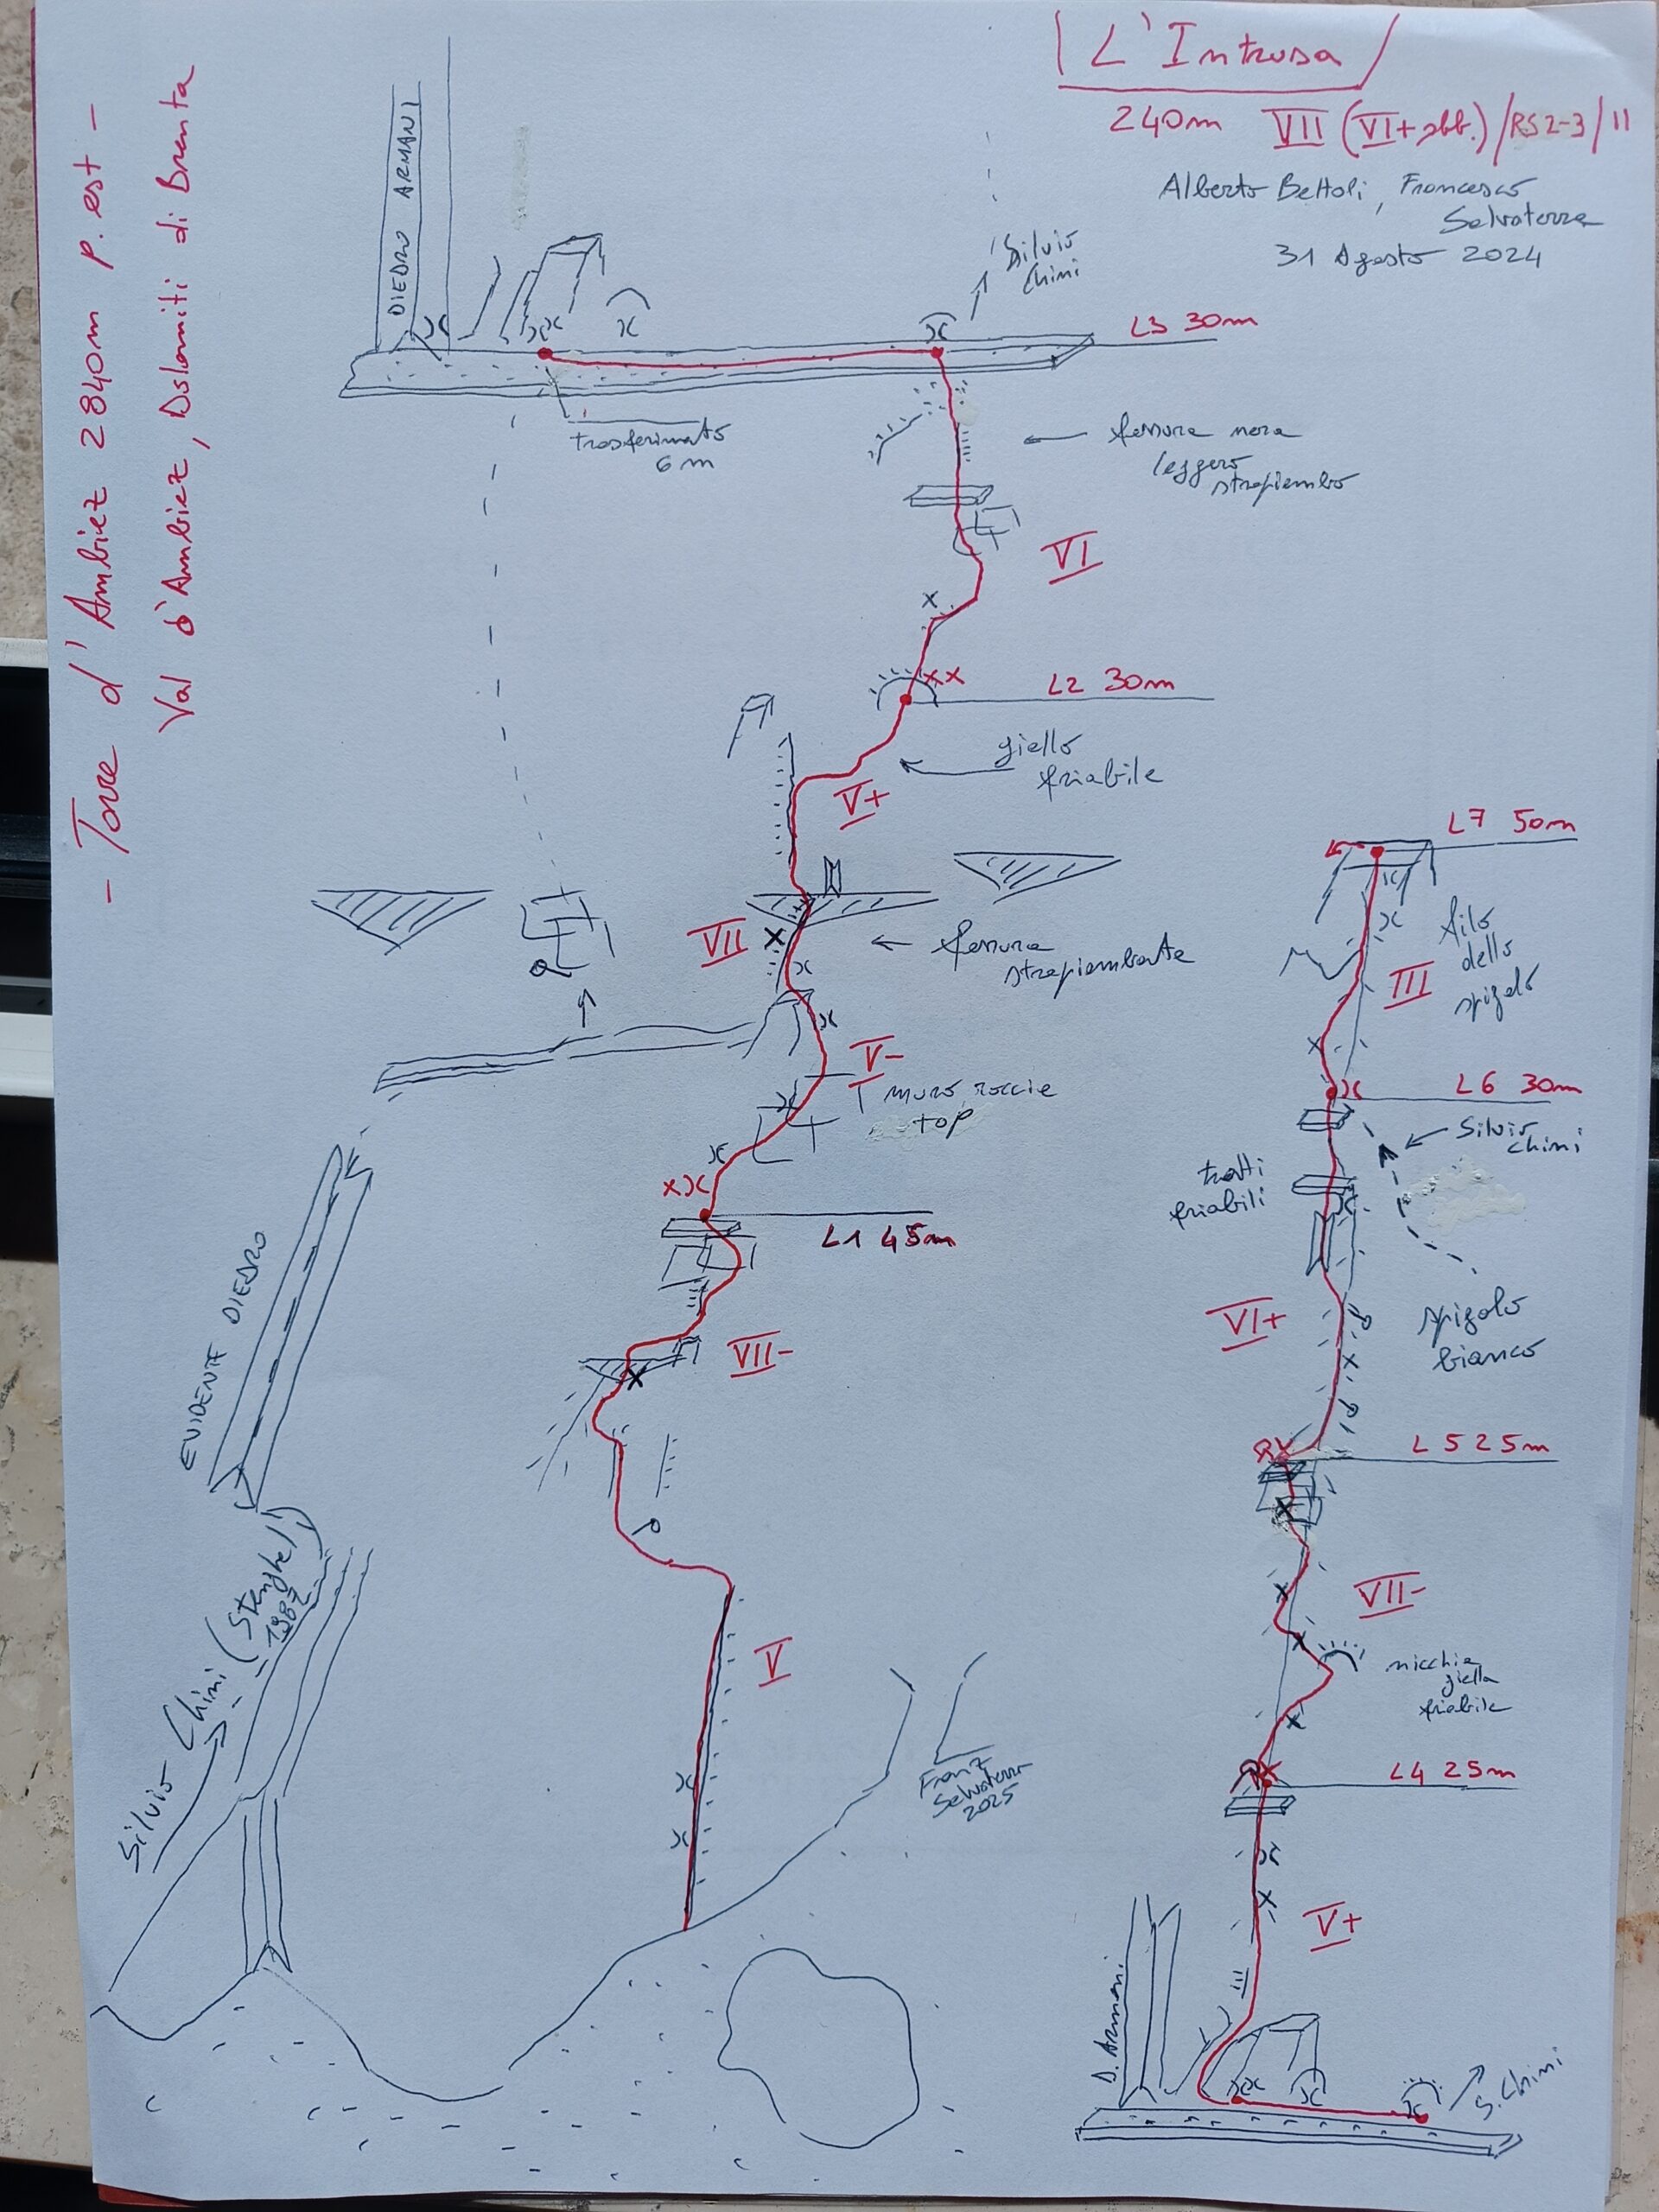 L'Intrusa
240m VII (VI+ obb.)/RS2-3/II
Alberto Bettoli, Francesco
Salvaterra
31 Agosto 2024
- Torre d'Ambiez 2840m p. est -
Val d'Ambiez, Dolomiti di Brenta
DIEDRO ARMANI
Silvio
Chini
L3 30m
trasferimento
6m
fessura nera
leggero
strapiombo
VI
L2 30m
giallo
friabile
V+
VII
fessura
strapiombante
V-
muro roccie
top
L1 45m
VII-
EVIDENTE DIEDRO
Silvio Chini (Stenghel)
1987
V
Franz
Salvaterra
2025
L7 50m
filo
dello
spigolo
III
L6 30m
Silvio
Chini
tratti
friabili
VI+
spigolo
bianco
L5 25m
VII-
nicchia
gialla
friabile
L4 25m
V+
D. Armani
S. Chini